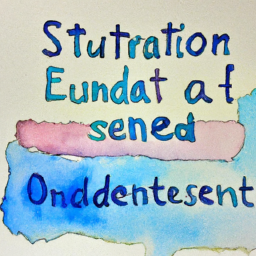 Stutration
Eundat af
sened
Onddentesent